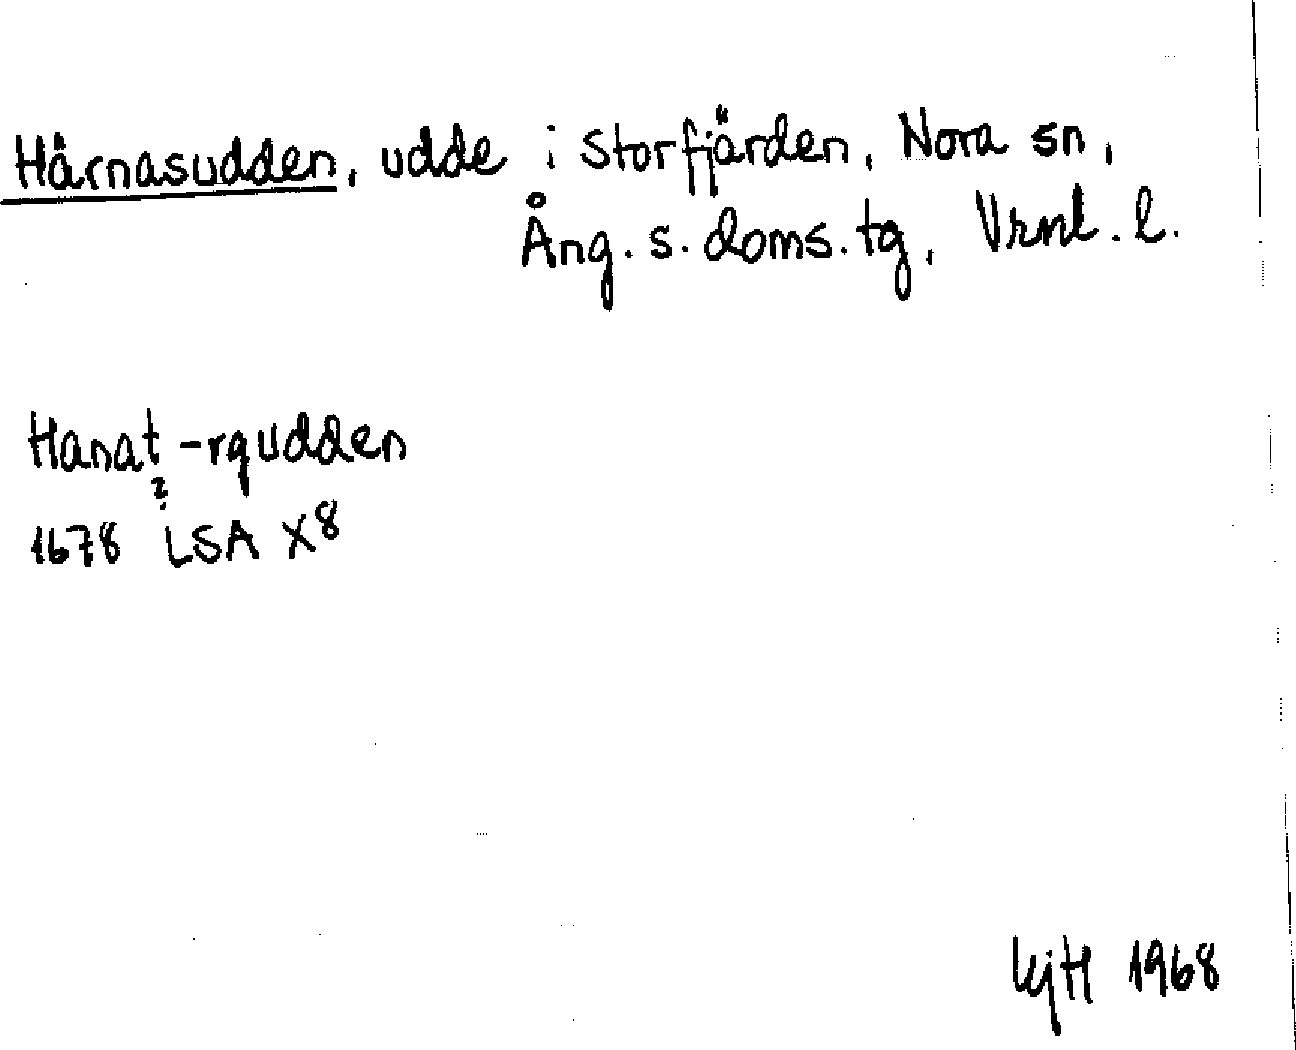 Härnasudden, udde i Storfjärden, Nora sn,
Ång. s. doms. tg, Vrnl. l.
Hanat -rgudden
?
1678 LSA X8
KjH 1968